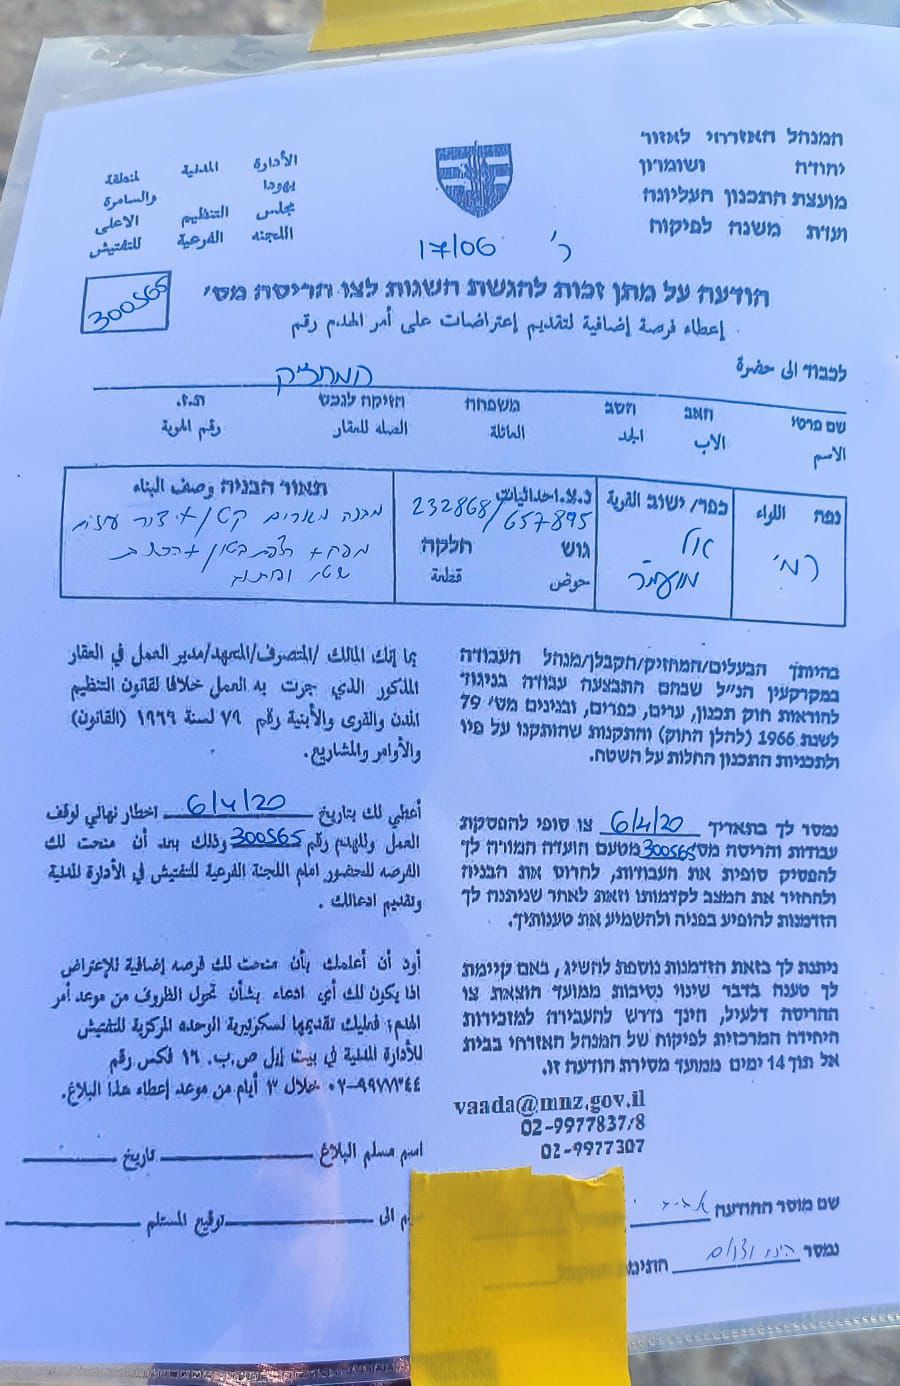 המנהל האזרחי לאזור
יהודה ושומרון
מועצת התכנון העליונה
ועדת משנה לפיקוח
الأدارة المدنية لمنطقة
يهودا والسامرة
مجلس التنظيم الاعلى
اللجنه الفرعية للتفتيش
ר' 17/06
הודעה על מתן זכות להגשת השגות לצו הריסה מס'
300565
إعطاء فرصة إضافية لتقديم إعتراضات على أمر الهدم رقم
לכבוד الى حضرة המחזיק
שם פרטי האב הסב משפחה הזיקה לנכס ת.ז.
الاسم الاب الجد العائلة الصله للعقار رقم الهوية
נפה اللواء
רמ'
כפר/ ישוב القرية
אל
מועמר
נ.צ. احداثيات
232868/657895
גוש חלקה
حوض قطعة
תאור הבניה وصف البناء
מבנה מגורים קטן +
בטון
בהיותך הבעלים/המחזיק/הקבלן/מנהל העבודה
במקרקעין הנ"ל שבהם התבצעה עבודה בניגוד
להוראות חוק תכנון, ערים, כפרים, ובנינים מס' 79
לשנת 1966 (להלן החוק) והתקנות שהותקנו על פיו
ולתכניות התכנון החלות על השטח.
بما إنك المالك /المتصرف/المتعهد/مدير العمل في العقار
المذكور الذي جرت به العمل خلافا لقانون التنظيم
المدن والقرى والأبنية رقم ٧٩ لسنة ١٩٦٦ (القانون)
والأوامر والمشاريع.
נמסר לך בתאריך 6/4/20 צו סופי להפסקת
עבודות והריסה מס' 300565 מטעם הועדה המורה לך
להפסיק סופית את העבודות, להרוס את הבניה
ולהחזיר את המצב לקדמותו וזאת לאחר שניתנה לך
הזדמנות להופיע בפניה ולהשמיע את טענותיך.
أعطي لك بتاريخ 6/4/20 اخطار نهائي لوقف
العمل وللهدم رقم 300565 وذلك بعد أن منحت لك
الفرصه للحضور امام اللجنة الفرعية للتفتيش في الأدارة المدنية
وتقديم ادعائك .
ניתנת לך בזאת הזדמנות נוספת להשיג , באם קיימת
לך טענה בדבר שינוי נסיבות ממועד הוצאת צו
ההריסה דלעיל, הינך נדרש להעבירה למזכירות
היחידה המרכזית לפיקוח של המנהל האזרחי בבית
אל תוך 14 ימים ממועד מסירת הודעה זו.
أود أن أعلمك بأن منحت لك فرصه إضافية للإعتراض
اذا يكون لك أي ادعاء بشأن تحول الظروف من موعد أمر
الهدم؛ فعليك تقديمها لسكرتيرية الوحده المركزية للتفتيش
للأدارة المدنية في بيت إيل ص.ب. ١٦ فكس رقم
٠٢-٩٩٧٧٣٤٤ خلال ٣ أيام من موعد إعطاء هذا البلاغ.
vaada@mnz.gov.il
02-9977837/8
02-9977307
اسم مسلم البلاغ تاريخ
الى توقيع المستلم
שם מוסר ההודעה
נמסר